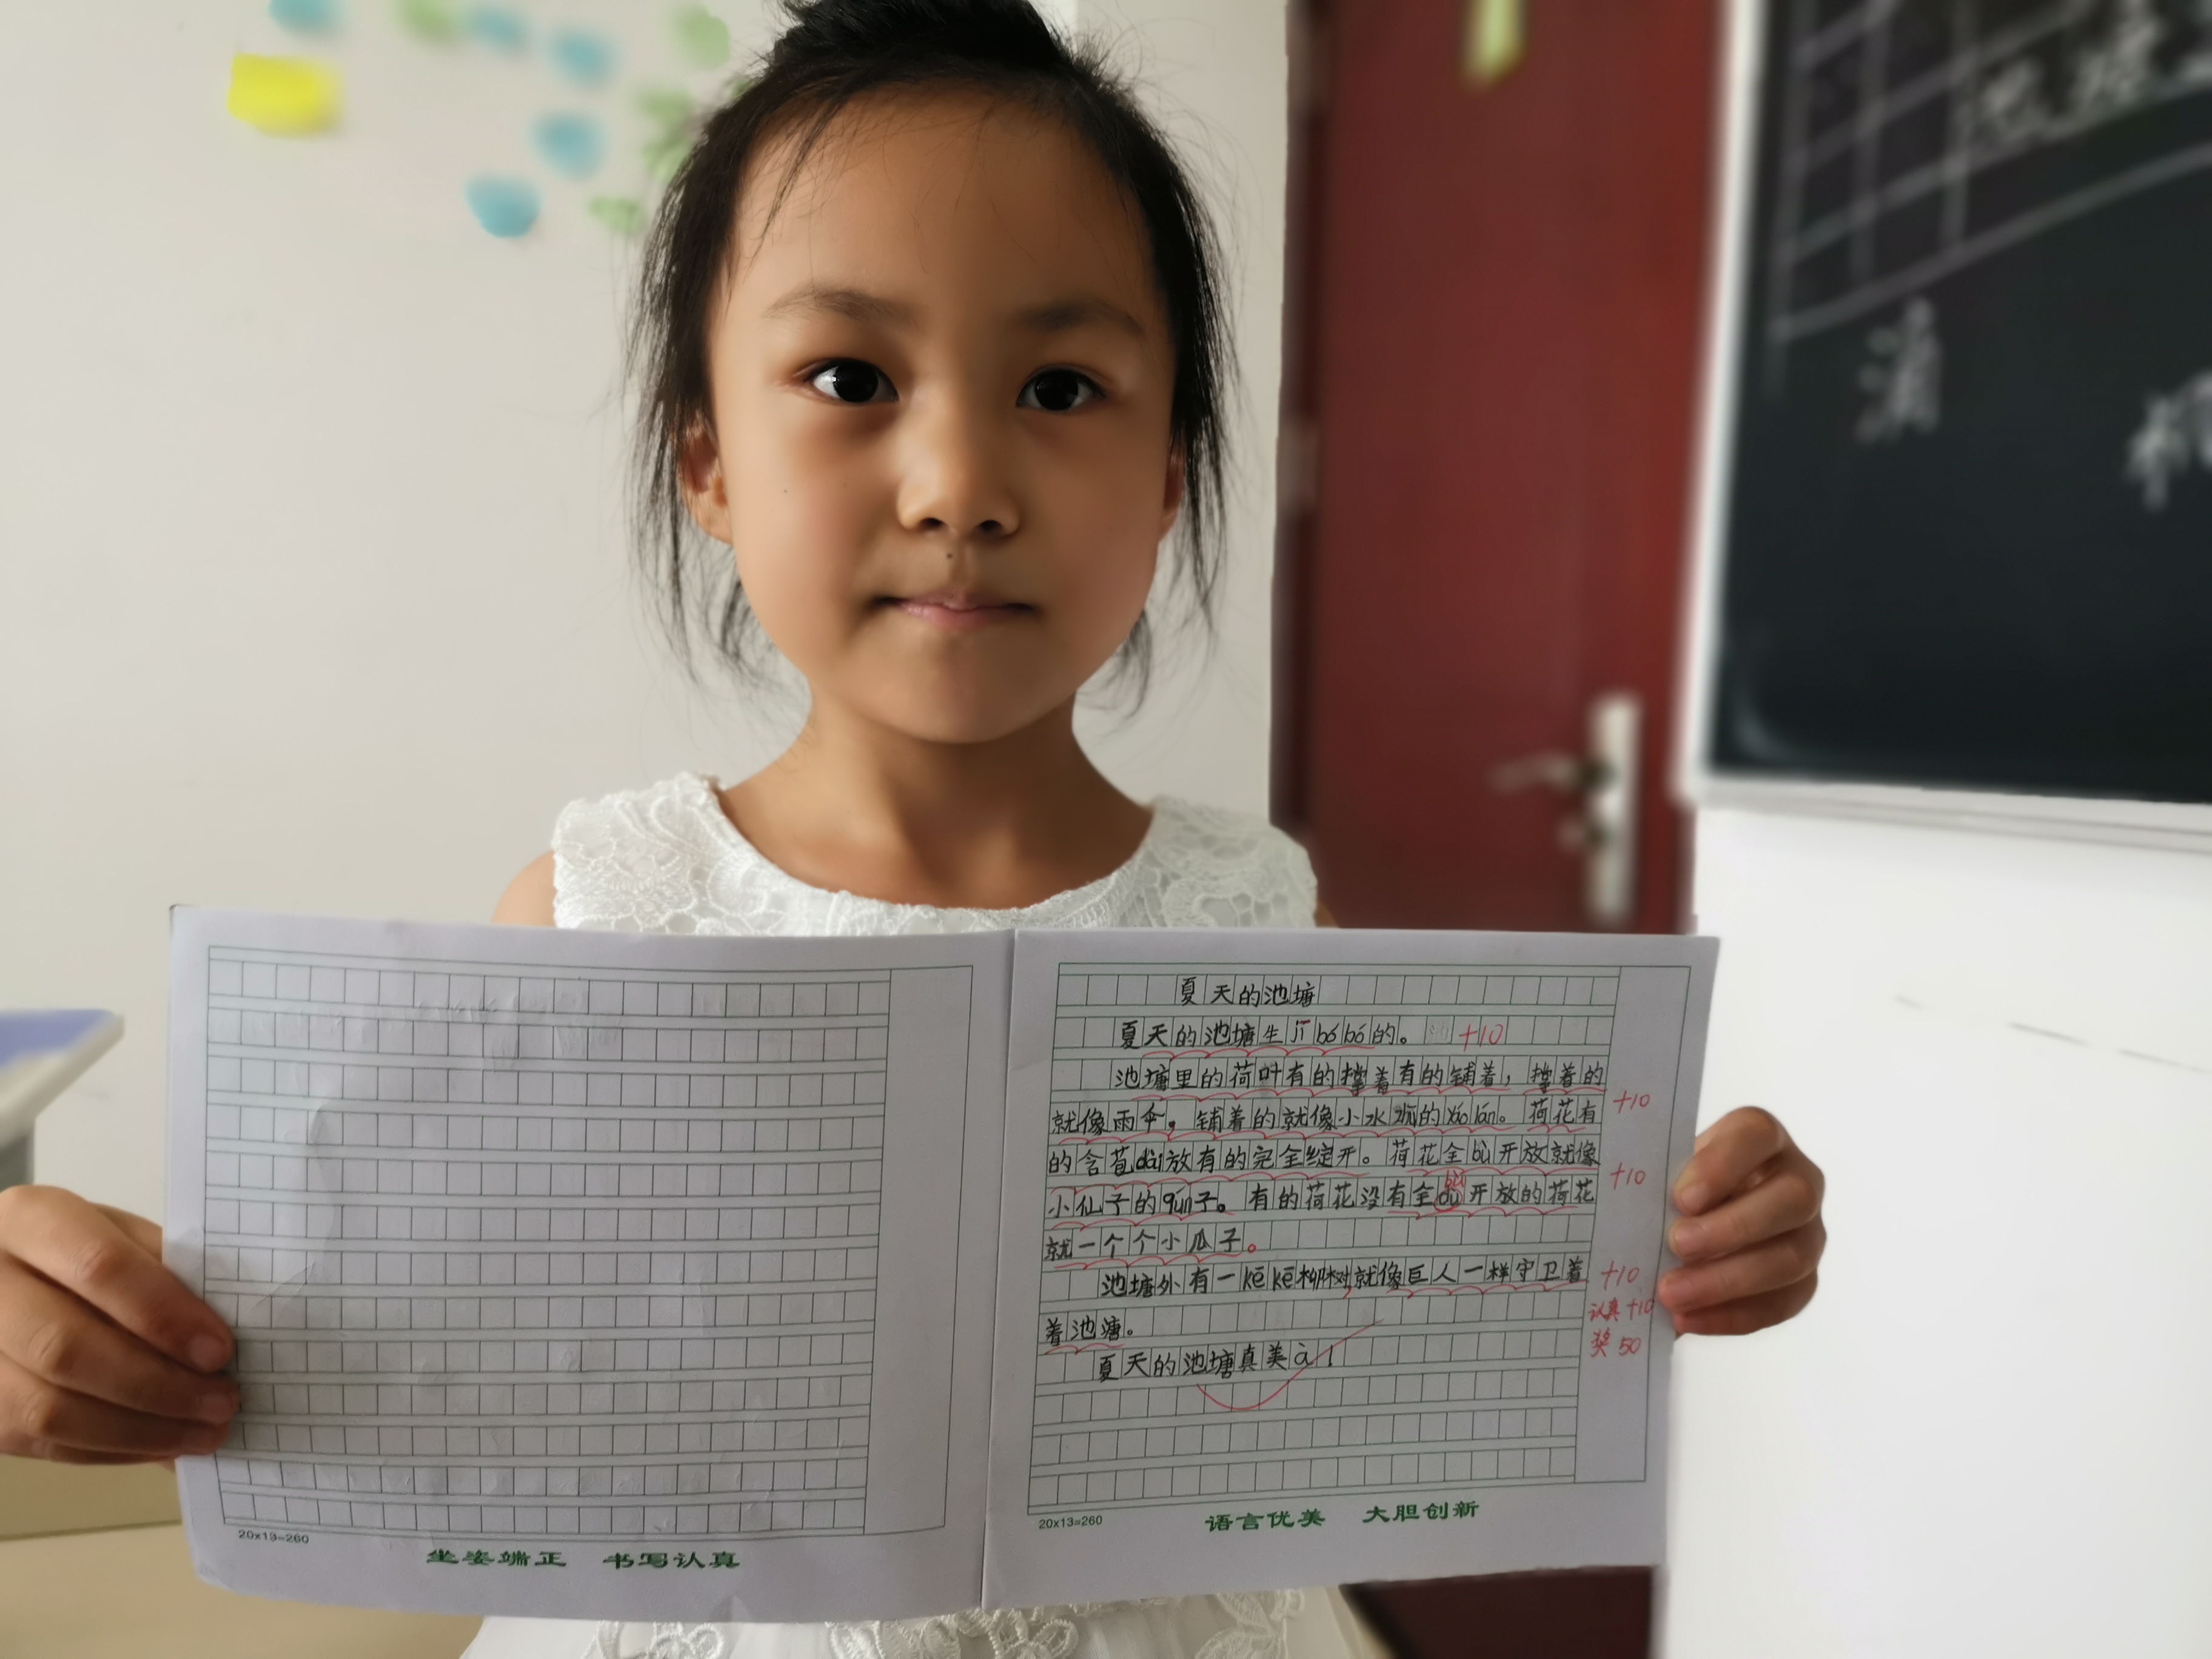 夏天的池塘
夏天的池塘生jī bó bó的。 +10
池塘里的荷叶有的撑着有的铺着，撑着的
就像雨伞，铺着的就像小水珠的yáo lán。荷花有 +10
的含苞dài放有的完全绽开。荷花全bù开放就像
小仙子的qún子。有的荷花没有全bù开放的荷花 +10
就一个个小瓜子。
池塘外有一kē kē柳树，就像巨人一样守卫着 +10
着池塘。
认真+10
奖50
夏天的池塘真美à！
20x13=260
语言优美 大胆创新
20x13=260
坐姿端正 书写认真
池塘
滴